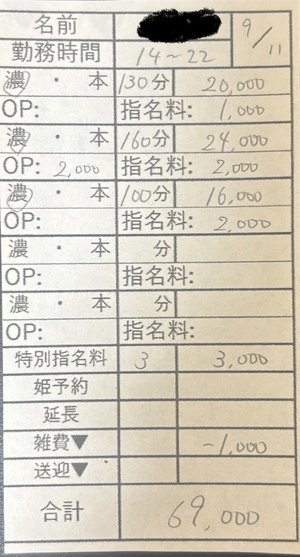 名前 9/11
勤務時間 14~22
濃・本 130分 20,000
OP: 指名料: 1,000
濃・本 160分 24,000
OP: 2,000 指名料: 2,000
濃・本 100分 16,000
OP: 指名料: 2,000
濃・本 分
OP: 指名料:
濃・本 分
OP: 指名料:
特別指名料 3 3,000
姫予約
延長
雑費▼ -1,000
送迎▼
合計 69,000